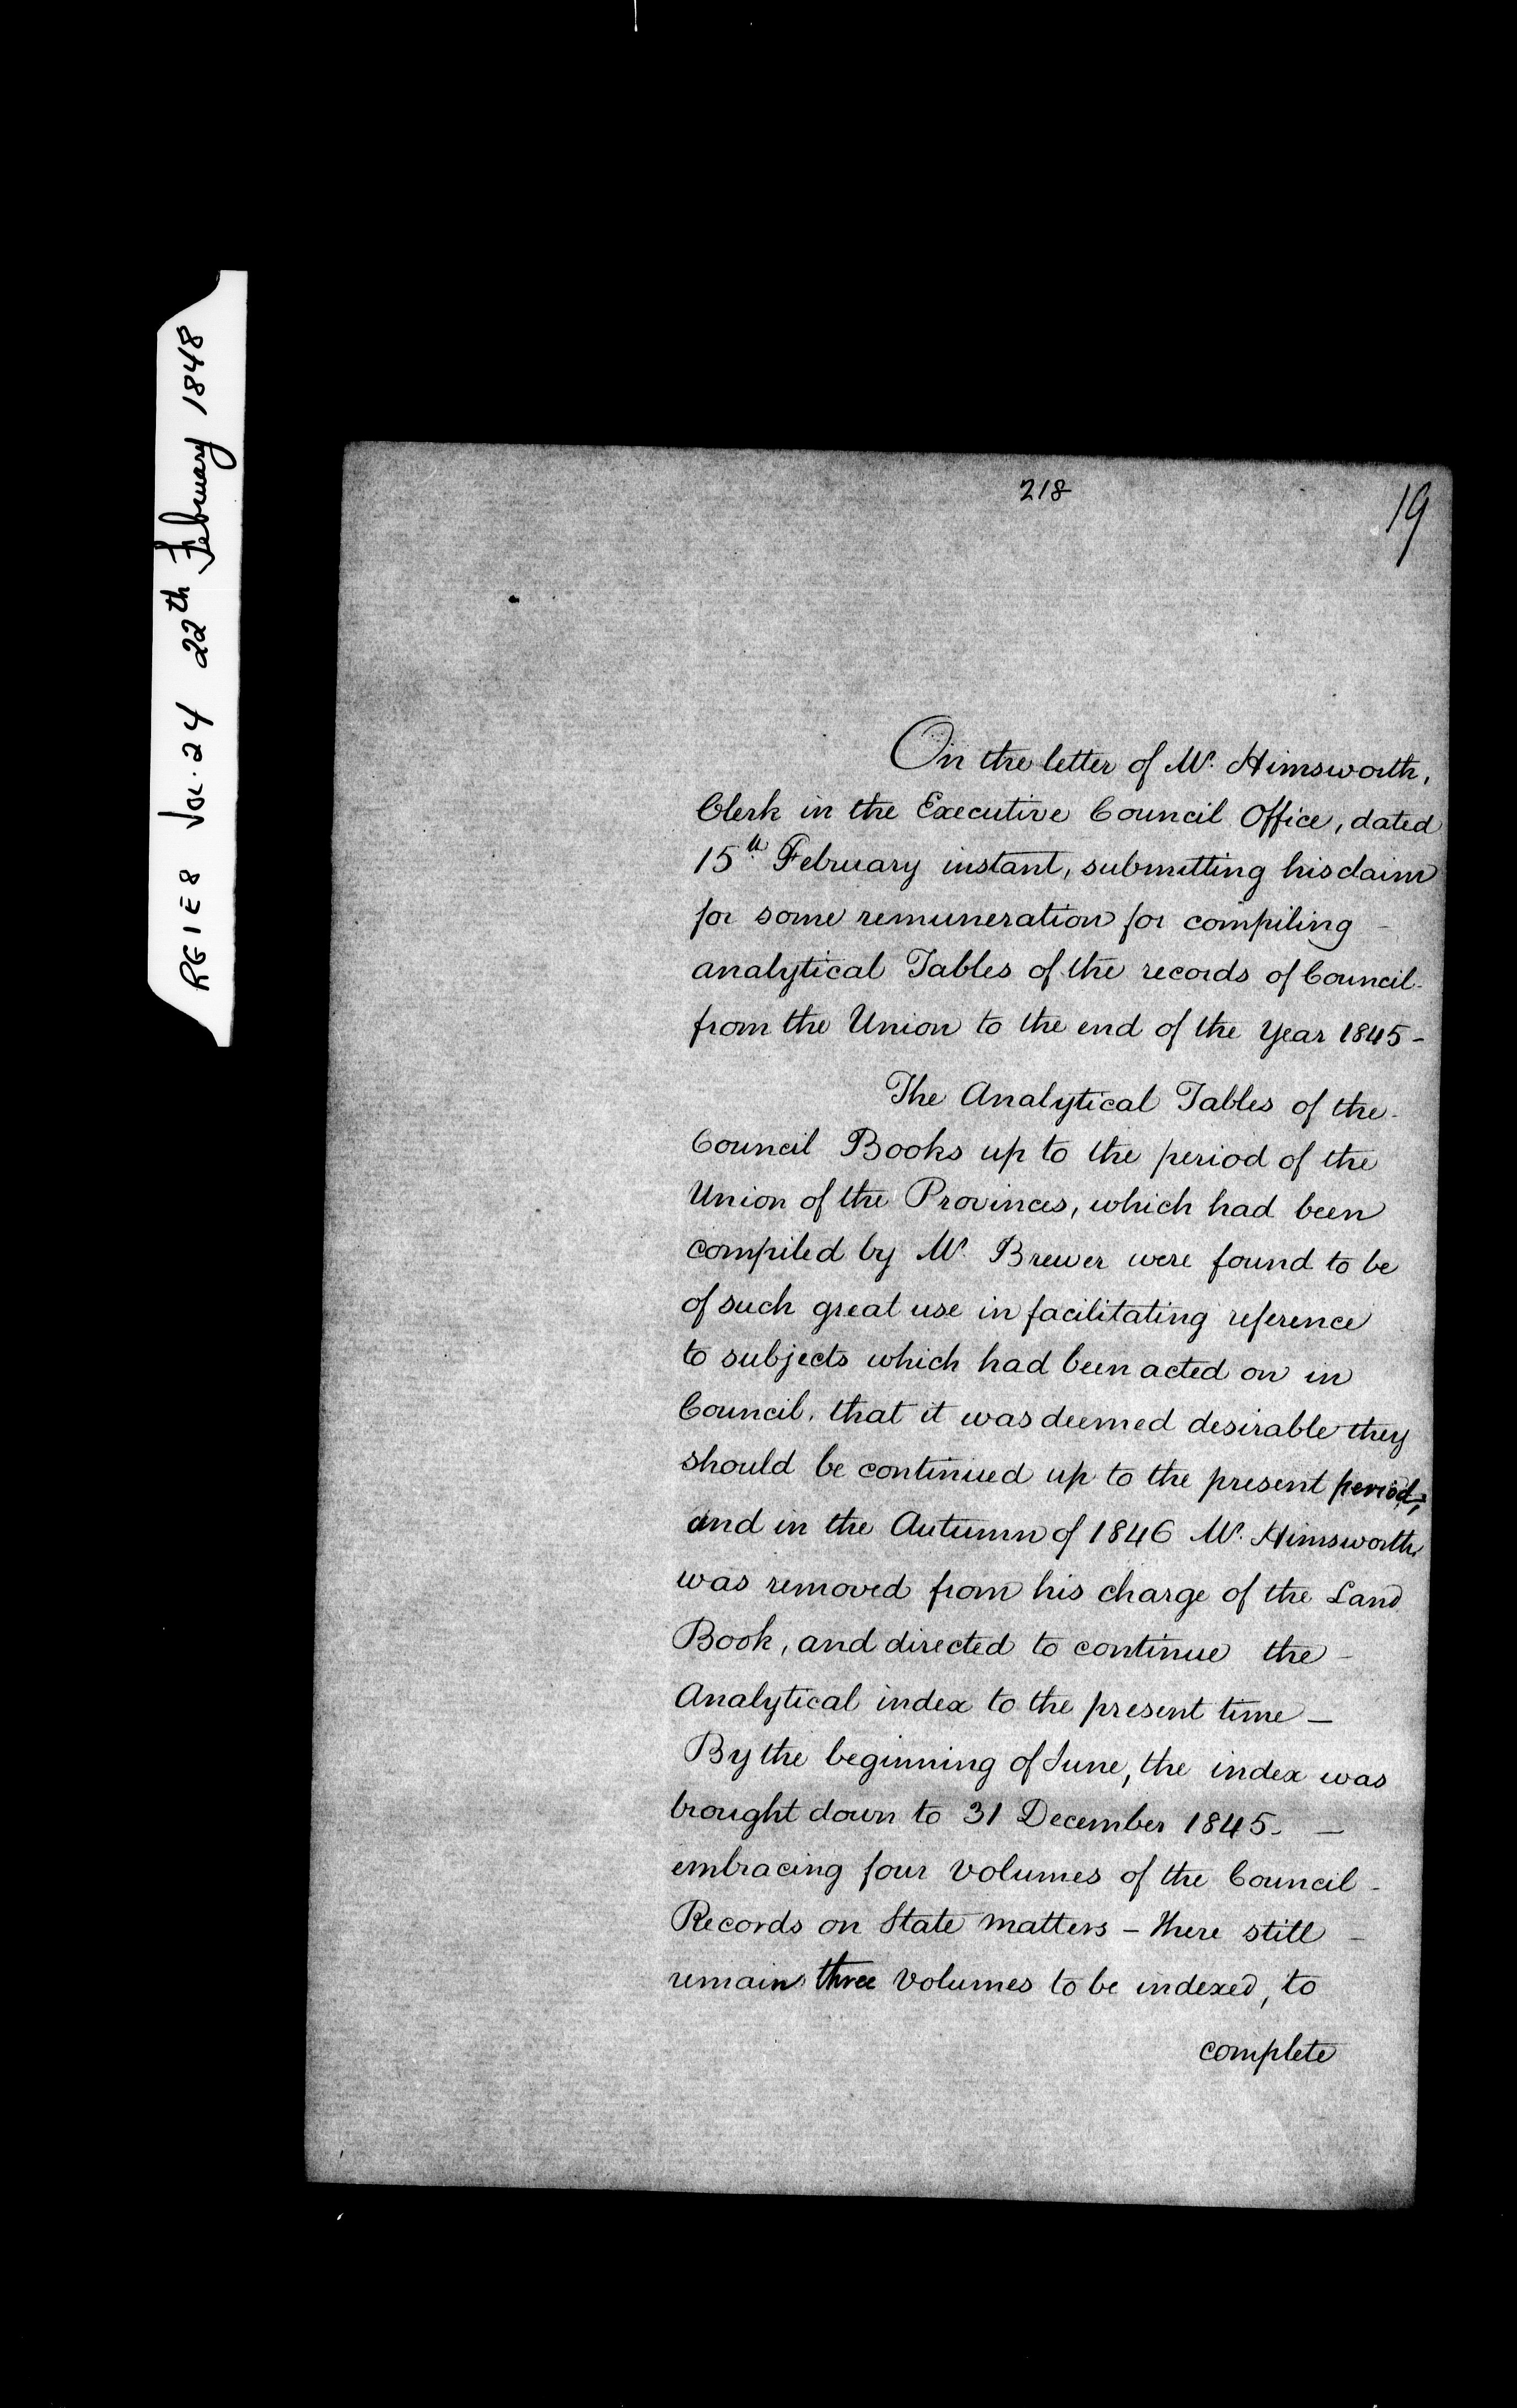 RG1E8 Vol. 24 22th February 1848
218
19
On the letter of Mr. Himsworth,
Clerk in the Executive Council Office, dated
15th February instant, submitting his claim
for some remuneration for compiling -
analytical Tables of the records of Council -
from the Union to the end of the Year 1845 -
The Analytical Tables of the -
Council Books up to the period of the
Union of the Provinces, which had been
compiled by Mr. Brewer were found to be
of such great use in facilitating reference
to subjects which had been acted on in
Council, that it was deemed desirable they
should be continued up to the present period;
and in the Autumn of 1846 Mr. Himsworth
was removed from his charge of the Land
Book, and directed to continue the -
Analytical index to the present time -
By the beginning of June, the index was
brought down to 31 December 1845 - -
embracing four volumes of the Council -
Records on State matters - there still -
remain three volumes to be indexed, to
complete